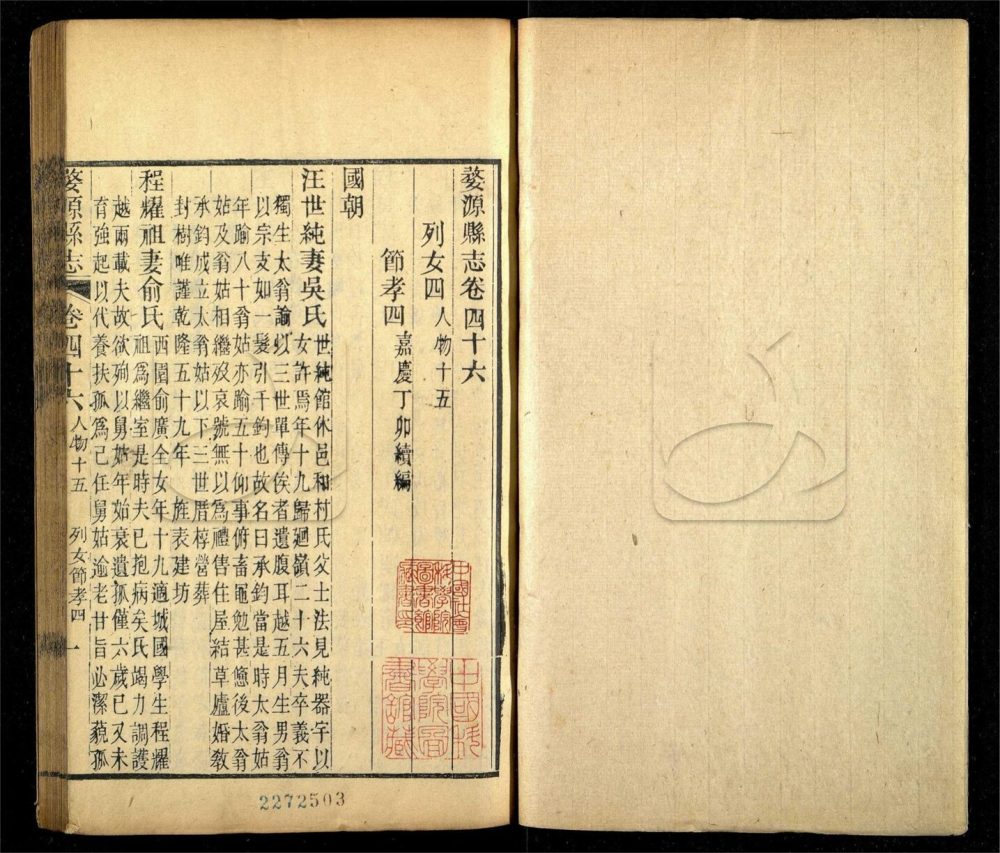 婺源縣志卷四十六
列女四人物十五
節孝四嘉慶丁卯續編
國朝
汪世純妻吳氏世純館休邑和村氏父士法見純器字以
女許焉年十九歸廻嶺二十六夫卒義不
獨生太翁諭以三世單傳俟者遺腹耳越五月生男翁
以宗支如一髮引千鈞也故名曰承鈞當是時太翁姑
年踰八十翁姑亦踰五十仰事俯畜黽勉甚憊後太翁
姑及翁姑相繼歿哀號無以爲禮售住屋結草廬婚敎
承鈞成立太翁姑以下三世厝椁營葬
封樹唯謹乾隆五十九年旌表建坊
程耀祖妻俞氏西園俞廣全女年十九適城國學生程耀
祖爲繼室是時夫已抱病矣氏竭力調護
越兩載夫故欲殉以舅姑年始衰遺孤僅六歲已又未
育強起以代養扶孤爲己任舅姑逾老甘旨必潔藐孤
婺源縣志卷四十六人物十五列女節孝四一
中國社會科學院圖書館藏書印
中國科學院圖書館藏
2272503